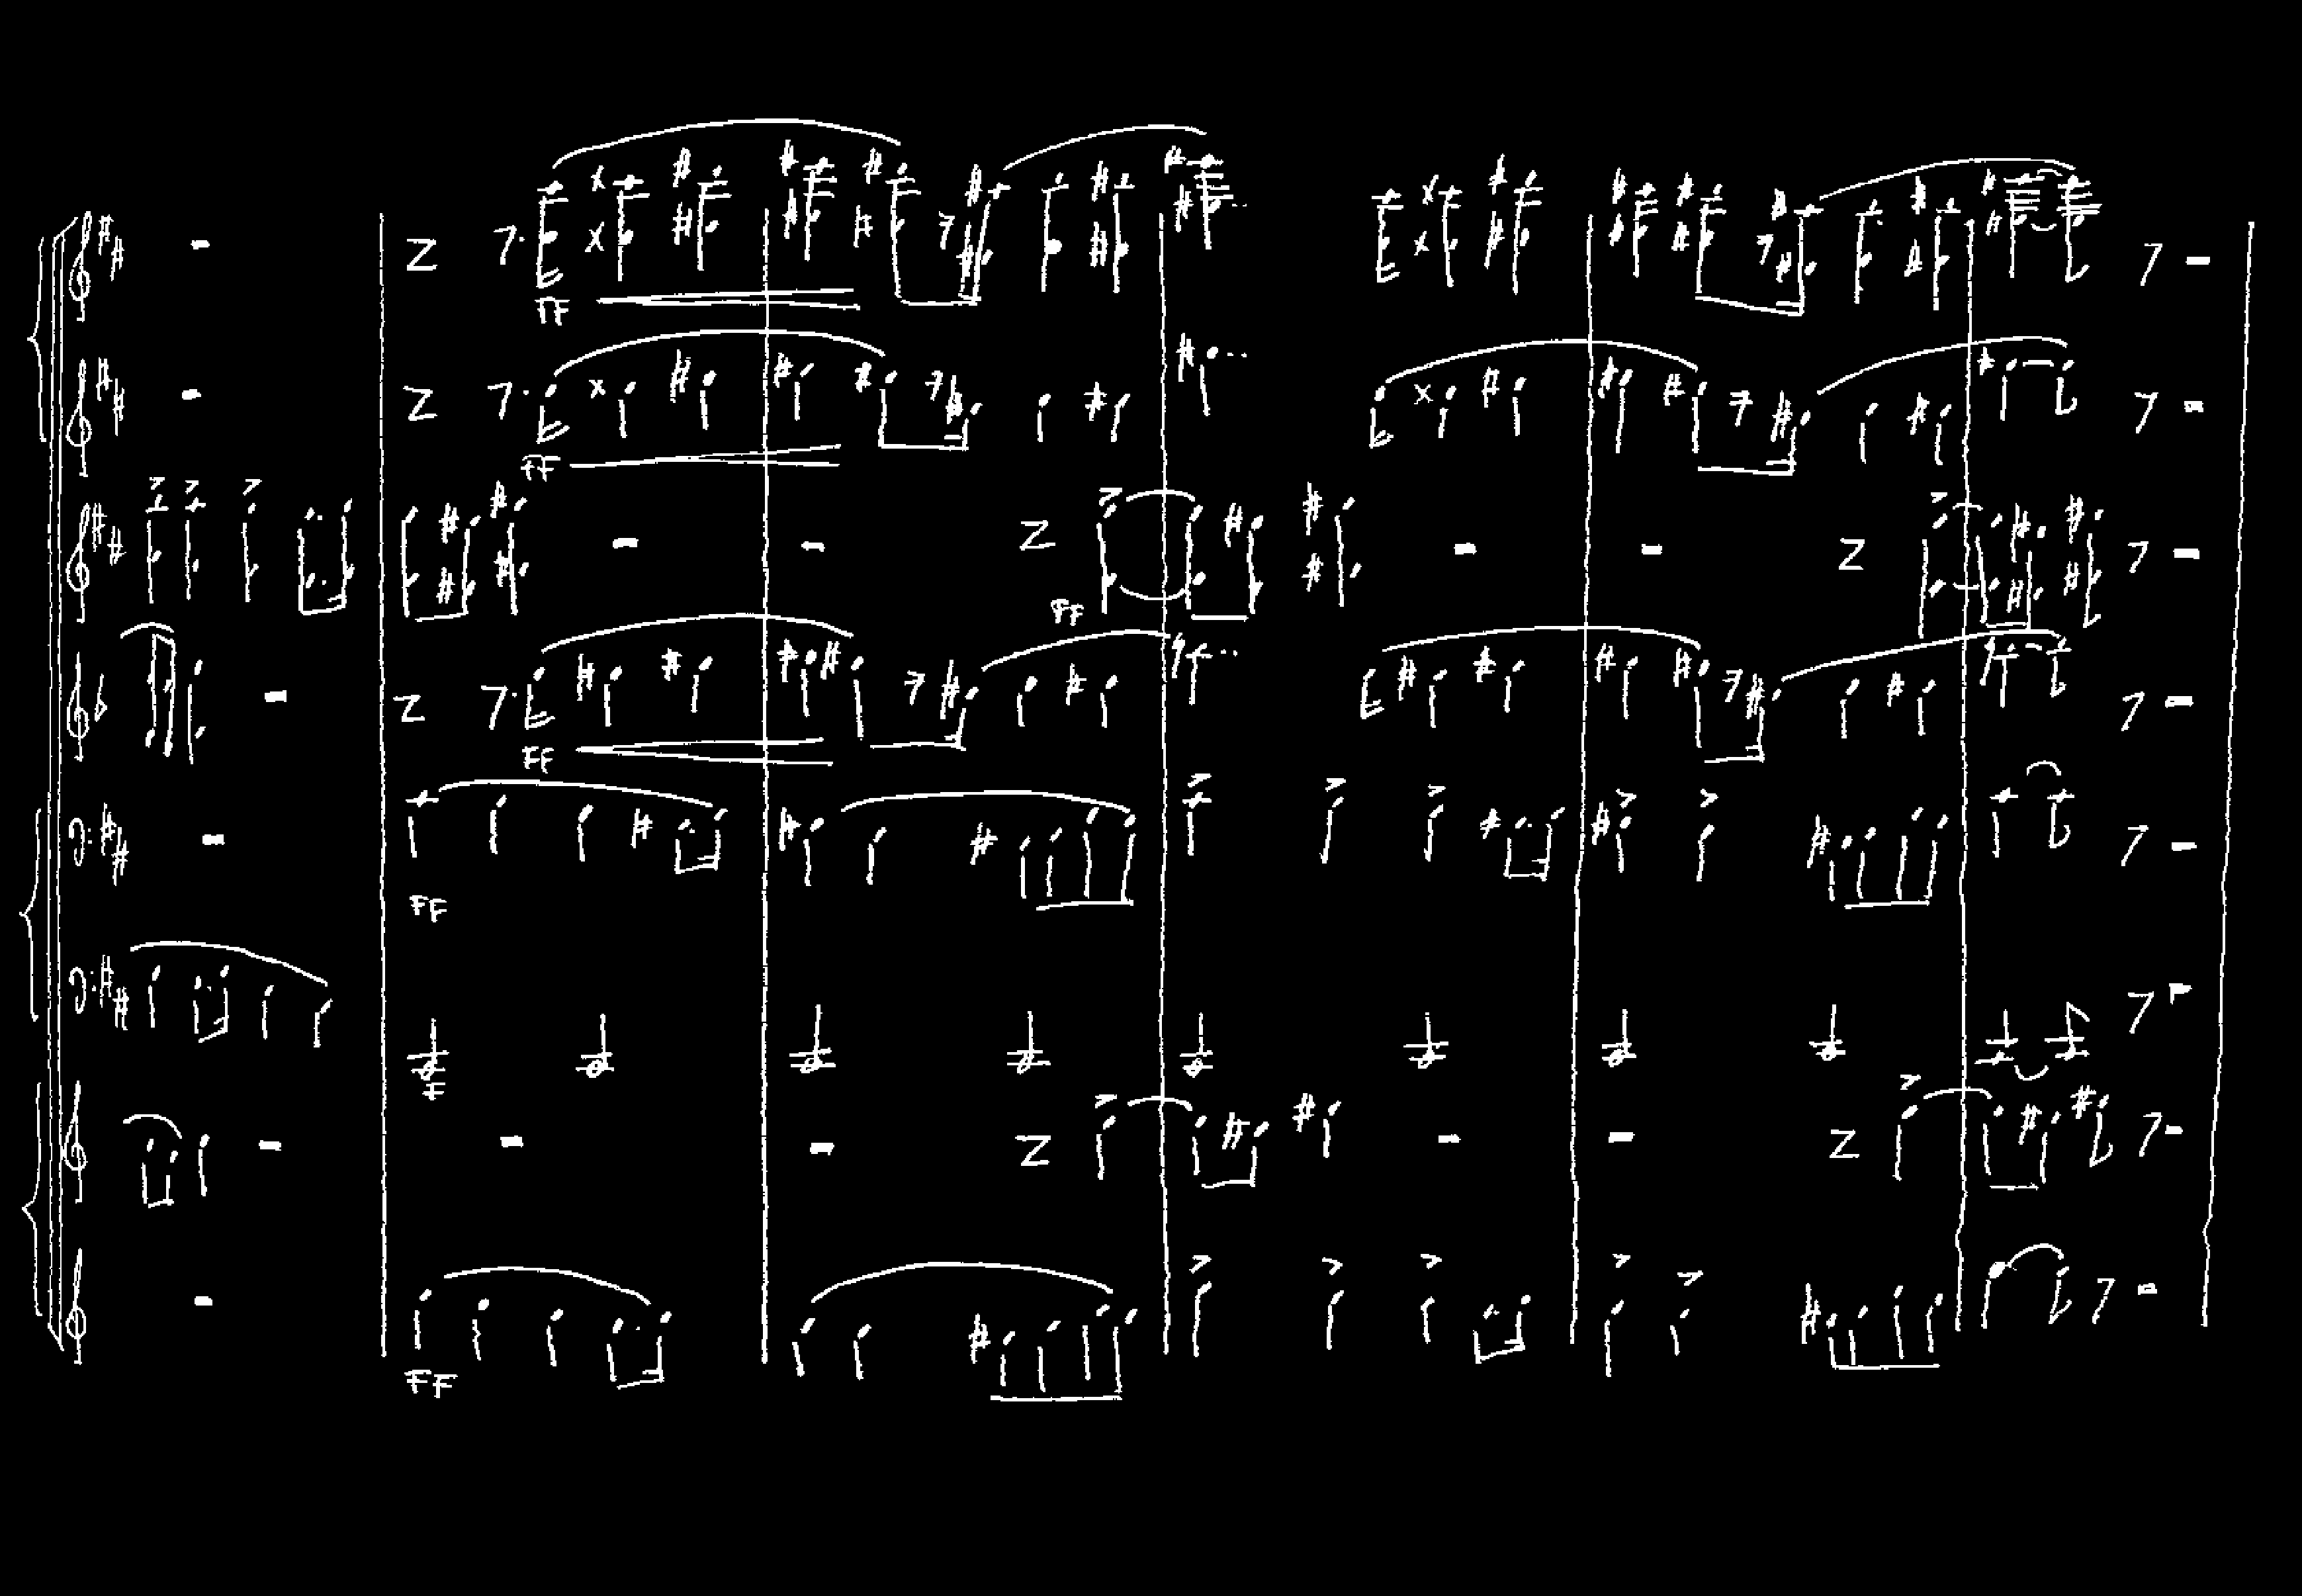 FF
FF
FF
FF
FF
F
FF